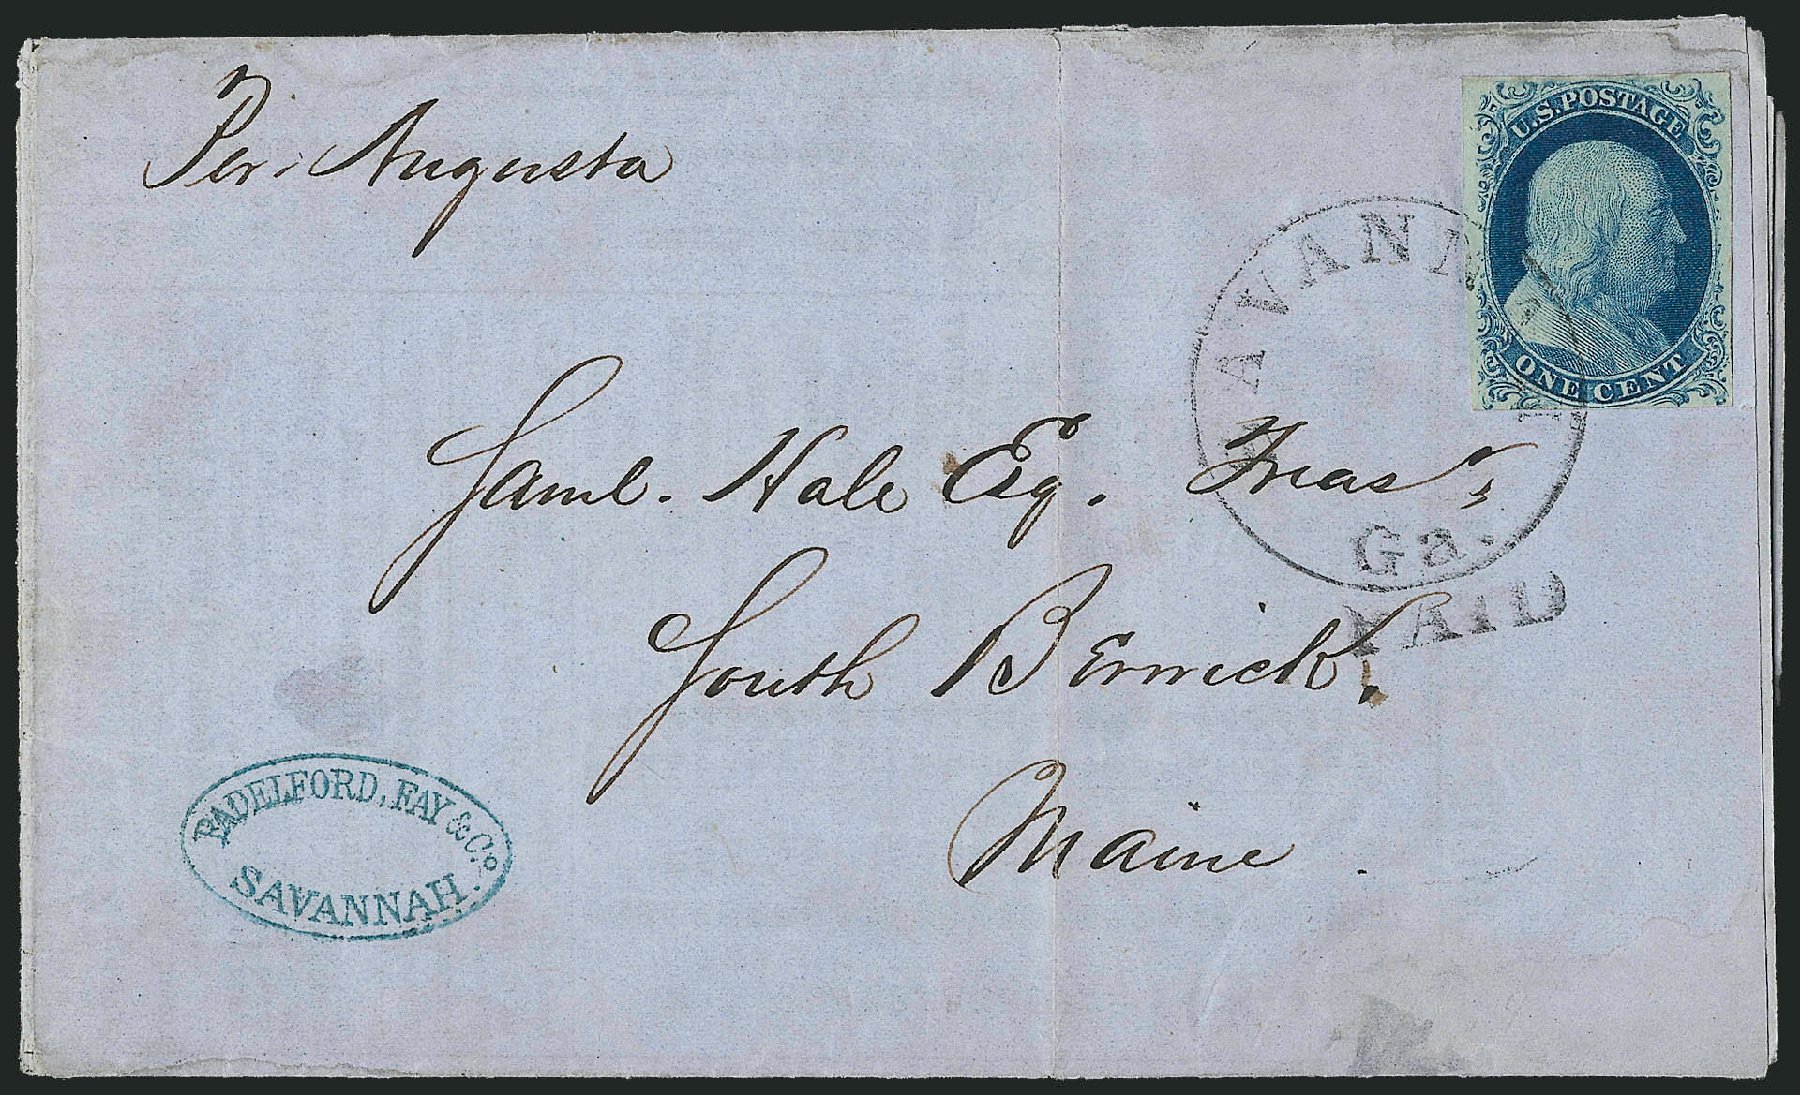 Per Augusta
U.S. POSTAGE
ONE CENT
SAVANNAH
Ga.
PAID
Saml. Hale Esq. Treasr,
South Berwick.
Maine
PADELFORD, FAY & Co.
SAVANNAH.